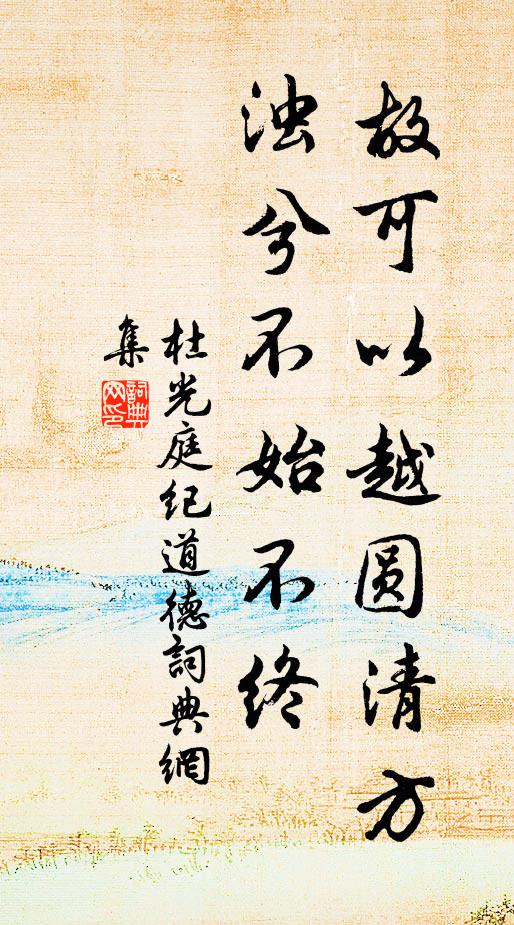 故可以越圆清方
浊兮不始不终
杜光庭纪道德詞典網
集
詞典
网印